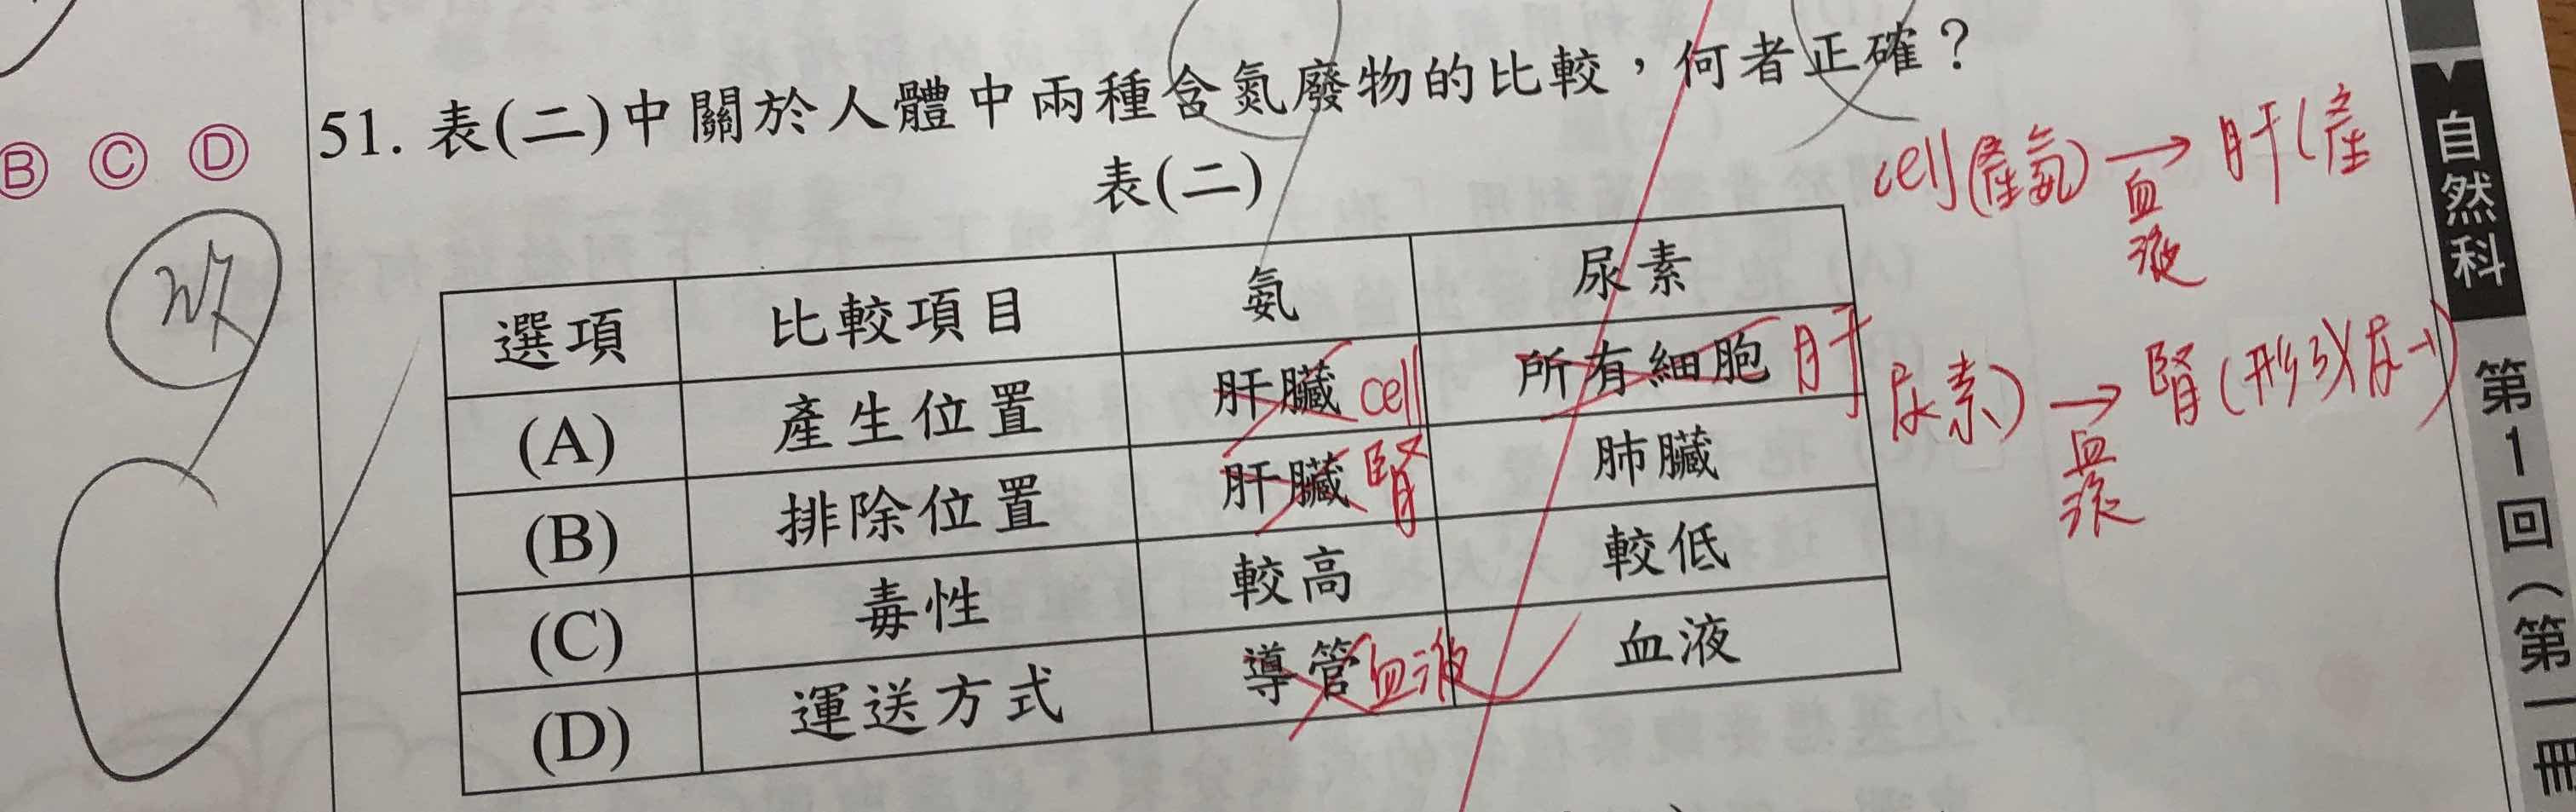 51. 表(二)中關於人體中兩種含氮廢物的比較，何者正確？
B C D
表(二)
選項 比較項目 氨 尿素
(A) 產生位置 肝臟 cell 所有細胞 肝
(B) 排除位置 肝臟 腎 肺臟
(C) 毒性 較高 較低
(D) 運送方式 導管 血液 血液
cell(產氨) → 肝(產
血液
尿素) → 腎(形成尿
血液
自然科
第1回(第一冊